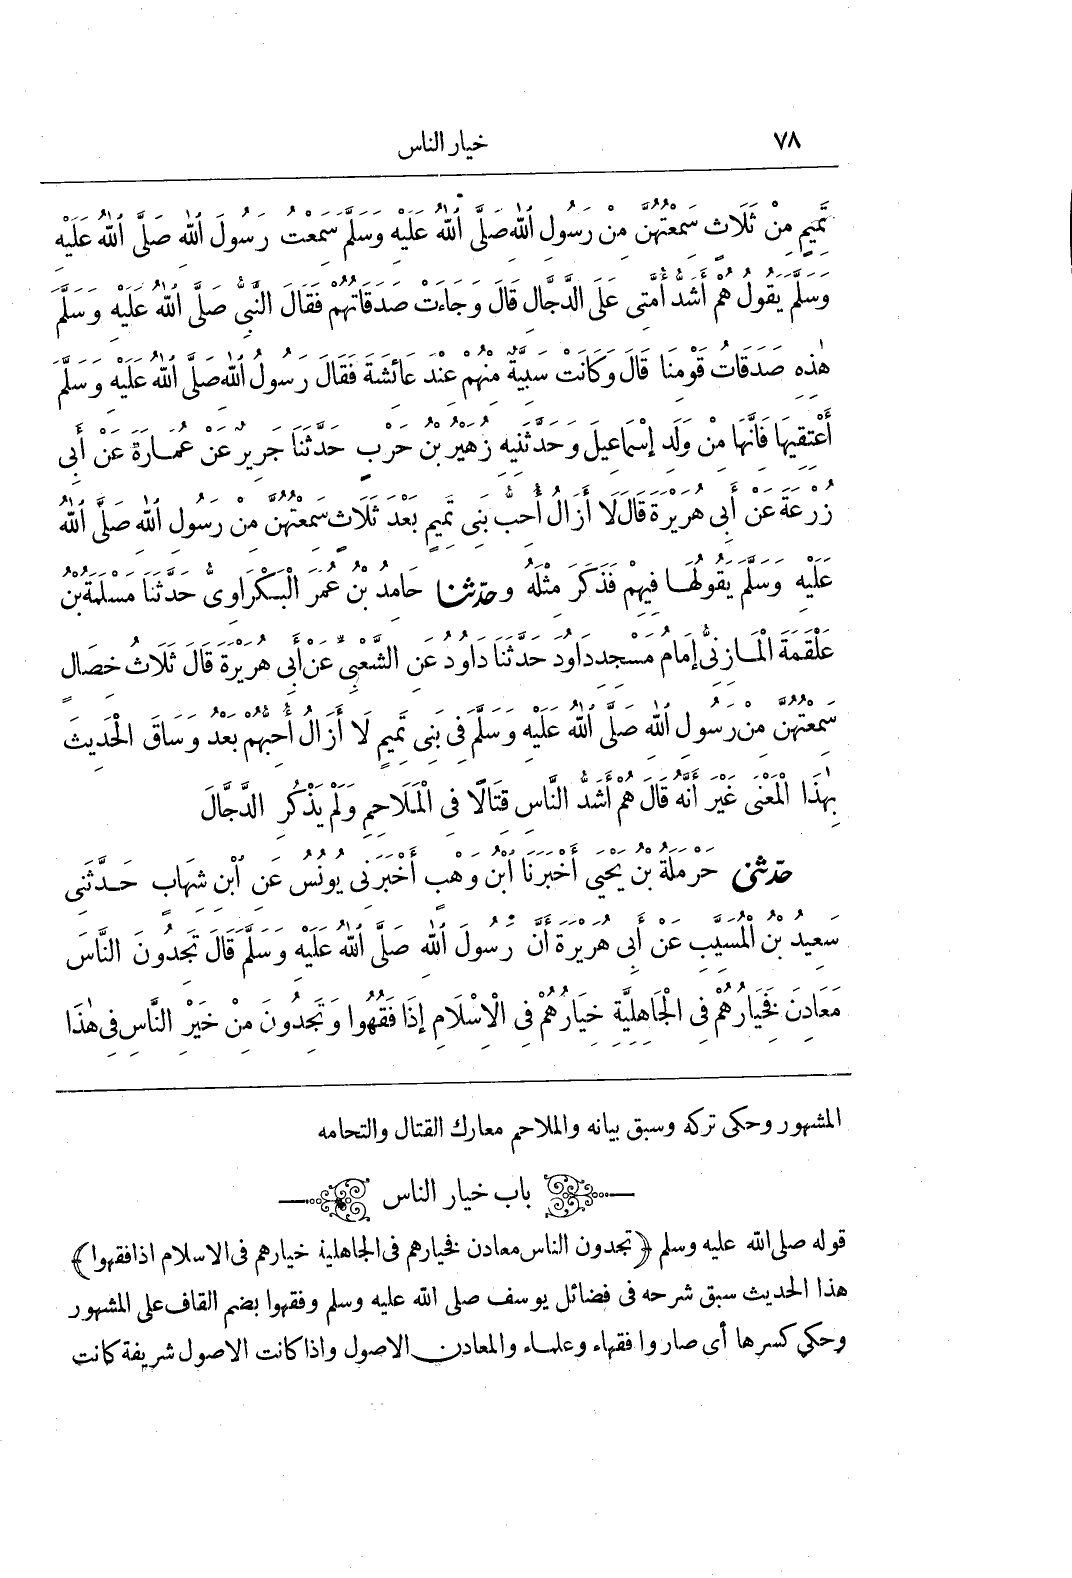 ٧٨ خيار الناس
تَمِيمٍ مِنْ ثَلَاثٍ سَمِعْتُهُنَّ مِنْ رَسُولِ اللّٰهِ صَلَّى اللّٰهُ عَلَيْهِ وَسَلَّمَ سَمِعْتُ رَسُولَ اللّٰهِ صَلَّى اللّٰهُ عَلَيْهِ
وَسَلَّمَ يَقُولُ هُمْ أَشَدُّ أُمَّتِى عَلَى الدَّجَّالِ قَالَ وَجَاءَتْ صَدَقَاتُهُمْ فَقَالَ النَّبِىُّ صَلَّى اللّٰهُ عَلَيْهِ وَسَلَّمَ
هٰذِهِ صَدَقَاتُ قَوْمِنَا قَالَ وَكَانَتْ سَبِيَّةٌ مِنْهُمْ عِنْدَ عَائِشَةَ فَقَالَ رَسُولُ اللّٰهِ صَلَّى اللّٰهُ عَلَيْهِ وَسَلَّمَ
أَعْتِقِيهَا فَإِنَّهَا مِنْ وَلَدِ إِسْمَاعِيلَ وَحَدَّثَنِيهِ زُهَيْرُ بْنُ حَرْبٍ حَدَّثَنَا جَرِيرٌ عَنْ عُمَارَةَ عَنْ أَبِى
زُرْعَةَ عَنْ أَبِى هُرَيْرَةَ قَالَ لَا أَزَالُ أُحِبُّ بَنِى تَمِيمٍ بَعْدَ ثَلَاثٍ سَمِعْتُهُنَّ مِنْ رَسُولِ اللّٰهِ صَلَّى اللّٰهُ
عَلَيْهِ وَسَلَّمَ يَقُولُهَا فِيهِمْ فَذَكَرَ مِثْلَهُ وحدّثنا حَامِدُ بْنُ عُمَرَ الْبَكْرَاوِىُّ حَدَّثَنَا مَسْلَمَةُ بْنُ
عَلْقَمَةَ الْمَازِنِىُّ إِمَامُ مَسْجِدِ دَاوُدَ حَدَّثَنَا دَاوُدُ عَنِ الشَّعْبِىِّ عَنْ أَبِى هُرَيْرَةَ قَالَ ثَلَاثُ خِصَالٍ
سَمِعْتُهُنَّ مِنْ رَسُولِ اللّٰهِ صَلَّى اللّٰهُ عَلَيْهِ وَسَلَّمَ فِى بَنِى تَمِيمٍ لَا أَزَالُ أُحِبُّهُمْ بَعْدُ وَسَاقَ الْحَدِيثَ
بِهٰذَا الْمَعْنَى غَيْرَ أَنَّهُ قَالَ هُمْ أَشَدُّ النَّاسِ قِتَالًا فِى الْمَلَاحِمِ وَلَمْ يَذْكُرِ الدَّجَّالَ
حدّثنى حَرْمَلَةُ بْنُ يَحْيَى أَخْبَرَنَا ابْنُ وَهْبٍ أَخْبَرَنِى يُونُسُ عَنِ ابْنِ شِهَابٍ حَدَّثَنِى
سَعِيدُ بْنُ الْمُسَيَّبِ عَنْ أَبِى هُرَيْرَةَ أَنَّ رَسُولَ اللّٰهِ صَلَّى اللّٰهُ عَلَيْهِ وَسَلَّمَ قَالَ تَجِدُونَ النَّاسَ
مَعَادِنَ فَخِيَارُهُمْ فِى الْجَاهِلِيَّةِ خِيَارُهُمْ فِى الْإِسْلَامِ إِذَا فَقُهُوا وَتَجِدُونَ مِنْ خَيْرِ النَّاسِ فِى هٰذَا
المشهور وحكى تركه وسبق بيانه والملاحم معارك القتال والتحامه
باب خيار الناس
قوله صلى الله عليه وسلم ﴿تجدون الناس معادن فخيارهم فى الجاهلية خيارهم فى الاسلام اذا فقهوا﴾
هذا الحديث سبق شرحه فى فضائل يوسف صلى الله عليه وسلم وفقهوا بضم القاف على المشهور
وحكي كسرها أى صاروا فقهاء وعلماء والمعادن الاصول واذا كانت الاصول شريفة كانت